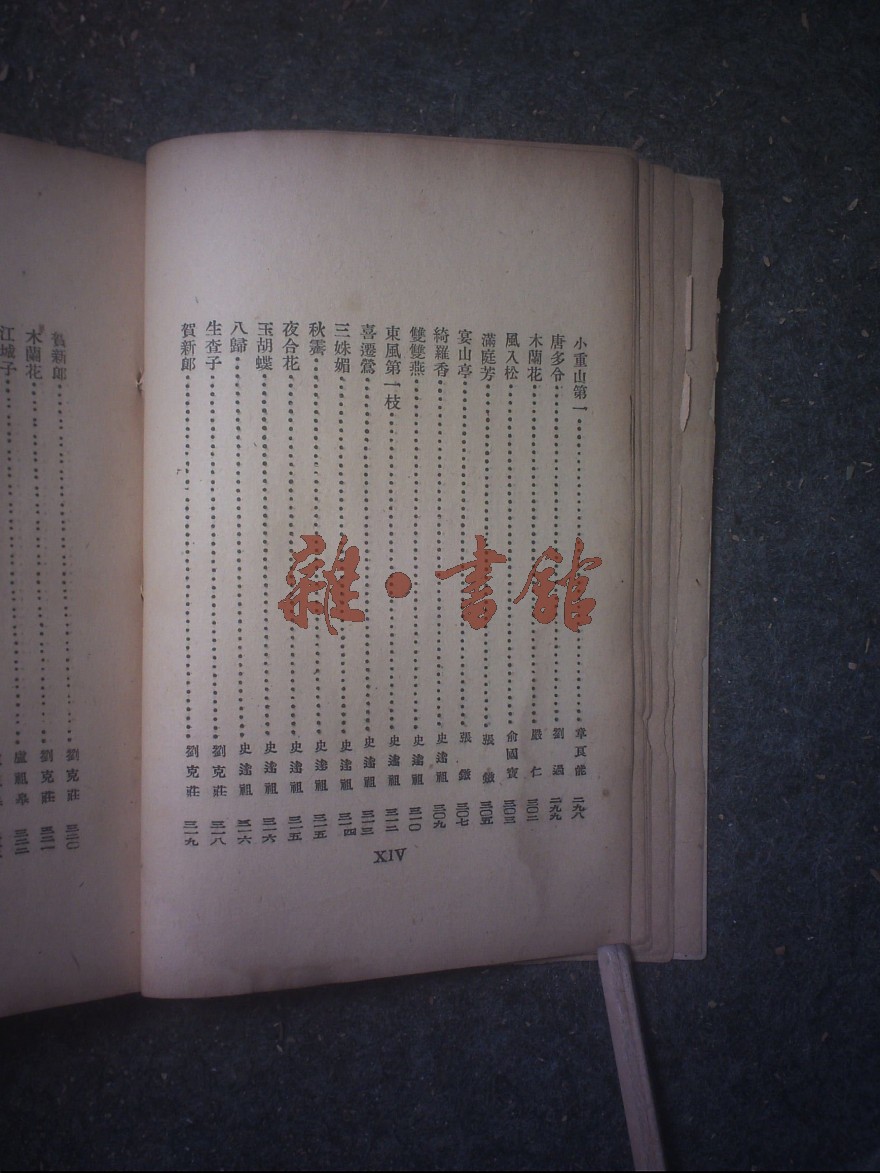 小重山第一 章良能 二九八
唐多令 劉過 二九九
木蘭花 嚴仁 三〇二
風入松 俞國寶 三〇三
滿庭芳 張鎡 三〇五
宴山亭 張鎡 三〇七
綺羅香 史達祖 三〇九
雙雙燕 史達祖 三一〇
東風第一枝 史達祖 三一二
喜遷鶯 史達祖 三一三
三姝媚 史達祖 三一四
秋霽 史達祖 三一五
夜合花 史達祖 三一五
玉胡蝶 史達祖 三一六
八歸 史達祖 三一六
生查子 劉克莊 三一八
賀新郎 劉克莊 三一九
XIV
賀新郎 劉克莊 三二〇
木蘭花 劉克莊 三二一
江城子 盧祖皋 三二二
雜·書館